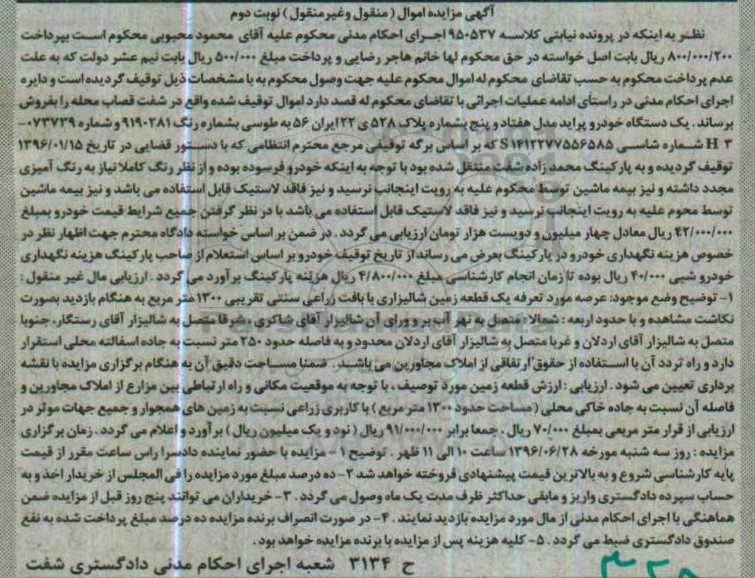 آگهی مزایده اموال ( منقول وغیرمنقول ) نوبت دوم
نظر به اینکه در پرونده نیابتی کلاسه ۹۵۰۵۳۷ اجرای احکام مدنی محکوم علیه آقای محمود محبوبی محکوم است بپرداخت
۸۰۰/۰۰۰/۲۰۰ ریال بابت اصل خواسته در حق محکوم لها خانم هاجر رضایی و پرداخت مبلغ ۵۰۰/۰۰۰ ریال بابت نیم عشر دولت که به علت
عدم پرداخت محکوم به حسب تقاضای محکوم له اموال محکوم علیه جهت وصول محکوم به با مشخصات ذیل توقیف گردیده است و دایره
اجرای احکام مدنی در راستای ادامه عملیات اجرائی با تقاضای محکوم له قصد دارد اموال توقیف شده واقع در شفت قصاب محله را بفروش
برساند . یک دستگاه خودرو پراید مدل هفتاد و پنج بشماره پلاک ۵۲۸ ی ۲۲ ایران ۵۶ به طوسی بشماره رنگ ۹۱۹۰۲۸۱ و شماره ۰۷۳۷۳۹-
H ۳ شماره شاسی S۱۴۱۲۲۷۷۵۵۶۵۸۵ که بر اساس برگه توقیفی مرجع محترم انتظامی که با دستور قضایی در تاریخ ۱۳۹۶/۰۱/۱۵
توقیف گردیده و به پارکینگ محمد زاده شفت منتقل شده بود با توجه به اینکه خودرو فرسوده بوده و از نظر رنگ کاملا نیاز به رنگ آمیزی
مجدد داشته و نیز بیمه ماشین توسط محکوم علیه به رویت اینجانب نرسید و نیز فاقد لاستیک قابل استفاده می باشد و نیز بیمه ماشین
توسط محوم علیه به رویت اینجانب نرسید و نیز فاقد لاستیک قابل استفاده می باشد با در نظر گرفتن جمیع شرایط قیمت خودرو بمبلغ
۴۲/۰۰۰/۰۰۰ ریال معادل چهار میلیون و دویست هزار تومان ارزیابی می گردد . در ضمن بر اساس خواسته دادگاه محترم جهت اظهار نظر در
خصوص هزینه نگهداری خودرو در پارکینگ بعرض می رساند از تاریخ توقیف خودرو بر اساس استعلام از صاحب پارکینگ هزینه نگهداری
خودرو شبی ۴۰/۰۰۰ ریال بوده تا زمان انجام کارشناسی مبلغ ۴/۸۰۰/۰۰۰ ریال هزینه پارکینگ برآورد می گردد . ارزیابی مال غیر منقول :
۱- توضیح وضع موجود: عرصه مورد تعرفه یک قطعه زمین شالیزاری با بافت زراعی سنتی تقریبی ۱۳۰۰ متر مربع به هنگام بازدید بصورت
نکاشت مشاهده و با حدود اربعه : شمالا متصل به نهر آب بر و ورای آن شالیزار آقای شاکری ، شرقا متصل به شالیزار آقای رستگار، جنوبا
متصل به شالیزار آقای اردلان و غربا متصل به شالیزار آقای اردلان محدود و به فاصله حدود ۲۵۰ متر نسبت به جاده اسفالته محلی استقرار
دارد و راه تردد آن با استفاده از حقوق ارتفاقی از املاک مجاورین می باشد . ضمنا مساحت دقیق آن به هنگام برگزاری مزایده با نقشه
برداری تعیین می شود . ارزیابی : ارزش قطعه زمین مورد توصیف ، با توجه به موقعیت مکانی و راه ارتباطی بین مزارع از املاک مجاورین و
فاصله آن نسبت به جاده خاکی محلی ( مساحت حدود ۱۳۰۰ متر مربع ) با کاربری زراعی نسبت به زمین های همجوار و جمیع جهات موثر در
ارزیابی از قرار متر مربعی بمبلغ ۷۰/۰۰۰ ریال . جمعا برابر ۹۱/۰۰۰/۰۰۰ ریال ( نود و یک میلیون ریال ) برآورد و اعلام می گردد . زمان برگزاری
مزایده : روز سه شنبه مورخه ۱۳۹۶/۰۶/۲۸ ساعت ۱۰ الی ۱۱ ظهر . توضیح ۱- مزایده با حضور نماینده دادسرا راس ساعت مقرر از قیمت
پایه کارشناسی شروع و به بالاترین قیمت پیشنهادی فروخته خواهد شد ۲- ده درصد مبلغ مورد مزایده را فی المجلس از خریدار اخذ و به
حساب سپرده دادگستری واریز و مابقی حداکثر ظرف مدت یک ماه وصول می گردد . ۳- خریداران می توانند پنج روز قبل از مزایده ضمن
هماهنگی با اجرای احکام مدنی از مال مورد مزایده بازدید نمایند . ۴- در صورت انصراف برنده مزایده ده درصد مبلغ پرداخت شده به نفع
صندوق دادگستری ضبط می گردد . ۵- کلیه هزینه پس از مزایده با برنده مزایده خواهد بود .
ح ۳۱۳۴ شعبه اجرای احکام مدنی دادگستری شفت